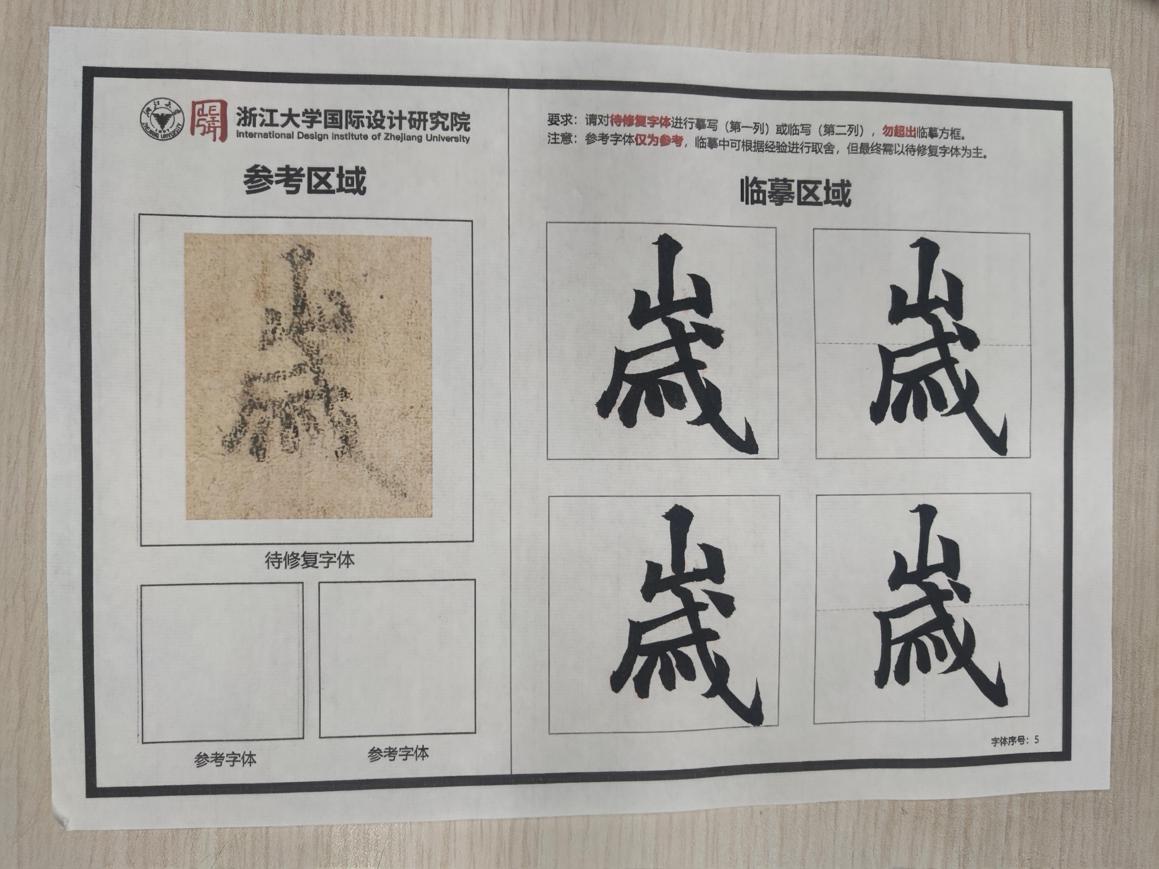 浙江大学国际设计研究院
International Design Institute of Zhejiang University
参考区域
歳
待修复字体
参考字体
参考字体
要求：请对待修复字体进行摹写（第一列）或临写（第二列），勿超出临摹方框。
注意：参考字体仅为参考，临摹中可根据经验进行取舍，但最终需以待修复字体为主。
临摹区域
歳 歳
歳 歳
字体序号：5